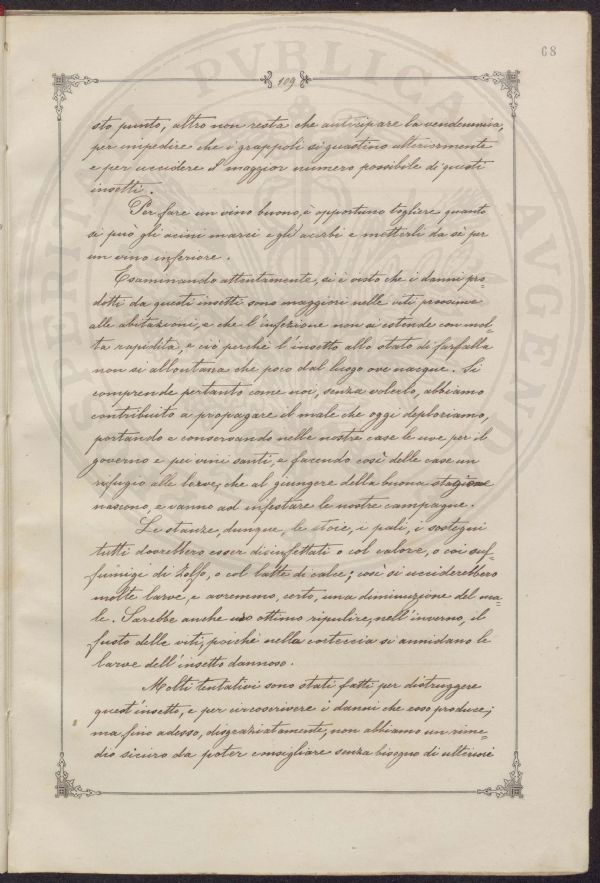 68
109
sto punto, altro non resta che anticipare la vendemmia,
per impedire che i grappoli si guastino ulteriormente
e per uccidere il maggior numero possibile di questi
insetti.
Per fare un vino buono, è opportuno togliere quanto
si può gli acini marci e gli acerbi e metterli da sè per
un vino inferiore.
Esaminando attentamente, si è visto che i danni pro=
dotti da questi insetti sono maggiori nelle viti prossime
alle abitazioni, e che l'infezione non si estende con mol=
ta rapidità, e ciò perchè l'insetto allo stato di farfalla
non si allontana che poco dal luogo ove nacque. Si
comprende pertanto come noi, senza volerlo, abbiamo
contribuito a propagare il male che oggi deploriamo,
portando e conservando nelle nostre case le uve per il
governo e pei vini santi, e facendo così delle case un
rifugio alle larve, che al giungere della buona stagione
nascono, e vanno ad infestare le nostre campagne.
Le stanze, dunque, le stoie, i pali, i sostegni
tutti dovrebbero esser disinfettati o col calore, o coi suf=
fumigi di zolfo, o col latte di calce; così si ucciderebbero
molte larve, e avremmo, certo, una diminuzione del ma=
le. Sarebbe anche uso ottimo ripulire, nell'inverno, il
fusto delle viti, poichè nella corteccia si annidano le
larve dell'insetto dannoso.
Molti tentativi sono stati fatti per distruggere
quest'insetto, e per circoscrivere i danni che esso produce;
ma fino adesso, disgraziatamente, non abbiamo un rime=
dio sicuro da poter consigliare senza bisogno di ulteriori
PVBLICAE
AVGENDAE